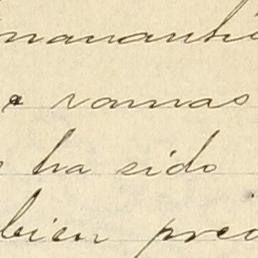 manantí
e vamos
ha sido
bien pre